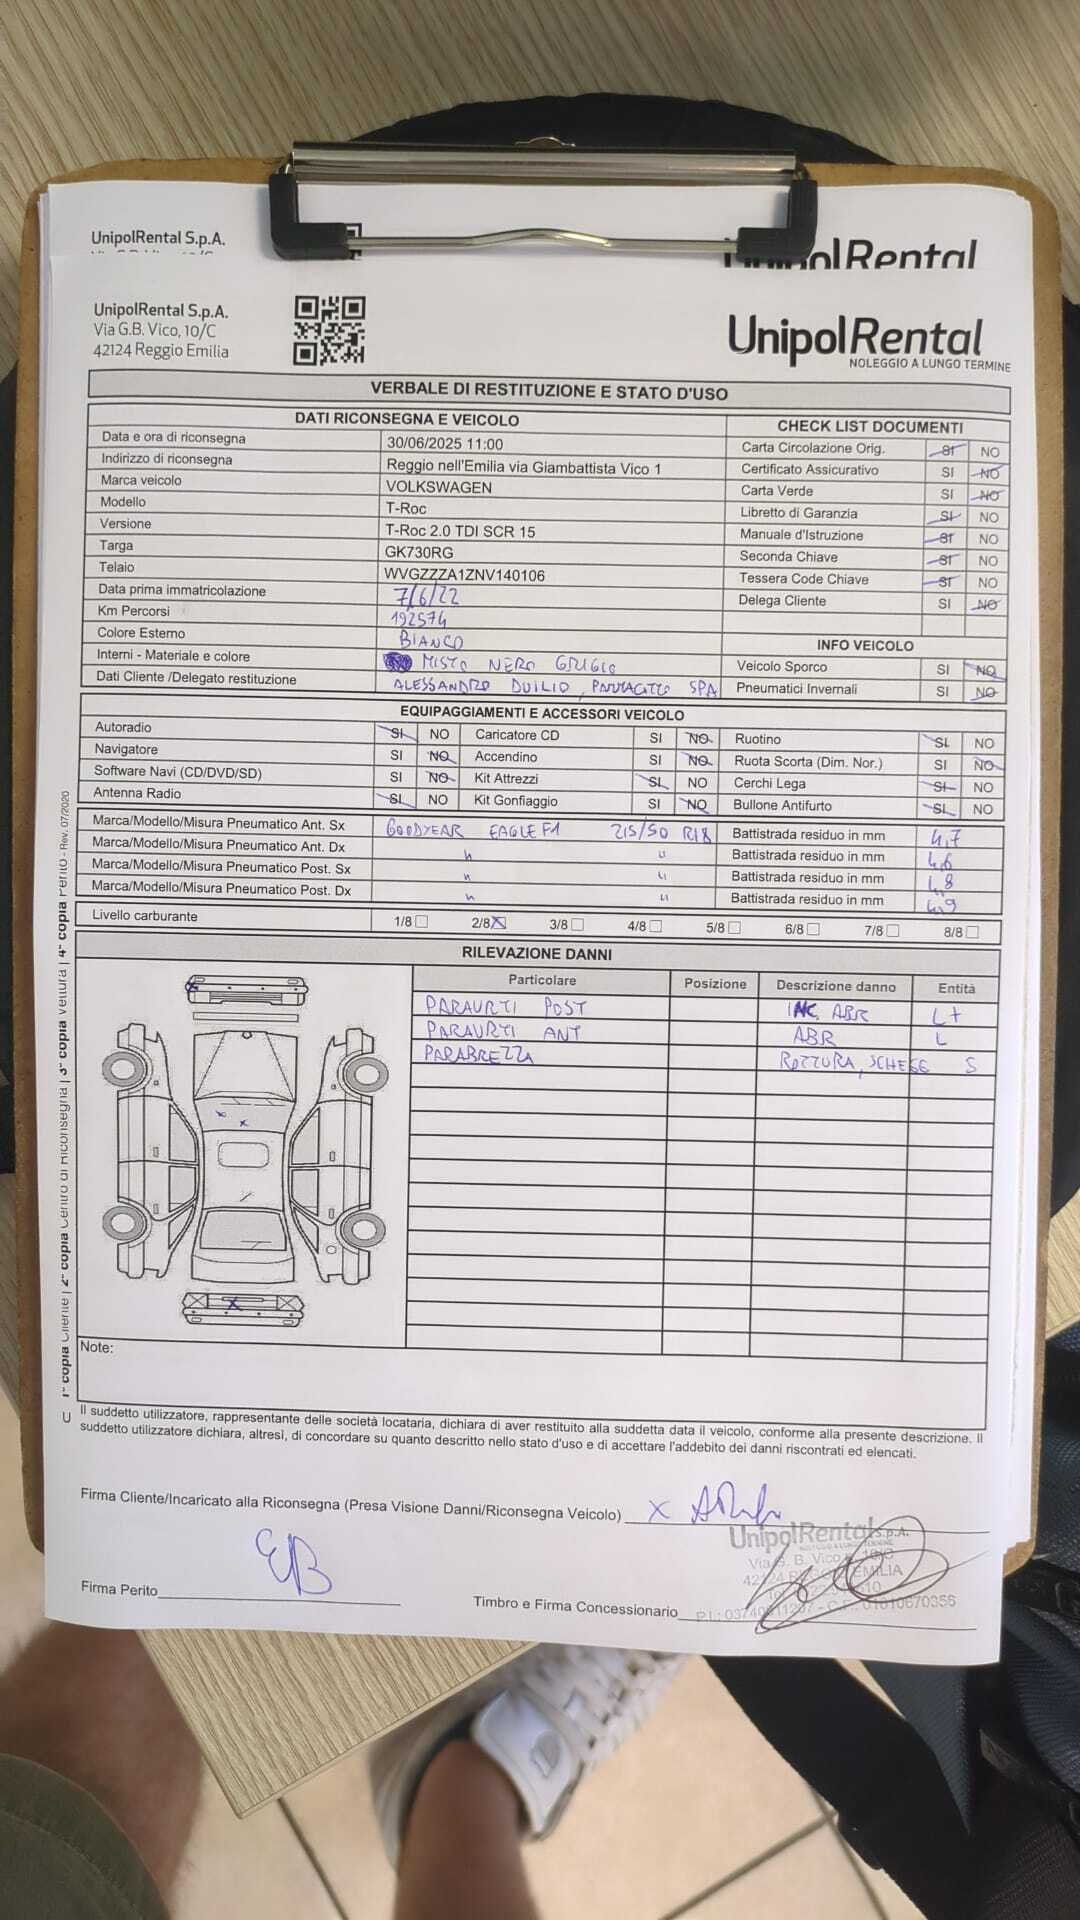 UnipolRental S.p.A.
UnipolRental
UnipolRental S.p.A.
Via G.B. Vico, 10/C
42124 Reggio Emilia
UnipolRental
NOLEGGIO A LUNGO TERMINE
VERBALE DI RESTITUZIONE E STATO D'USO
DATI RICONSEGNA E VEICOLO
Data e ora di riconsegna 30/06/2025 11:00
Indirizzo di riconsegna Reggio nell'Emilia via Giambattista Vico 1
Marca veicolo VOLKSWAGEN
Modello T-Roc
Versione T-Roc 2.0 TDI SCR 15
Targa GK730RG
Telaio WVGZZZA1ZNV140106
Data prima immatricolazione 7/6/22
Km Percorsi 192574
Colore Esterno BIANCO
Interni - Materiale e colore MISTO NERO GRIGIO
Dati Cliente /Delegato restituzione ALESSANDRO DUILIO, SPA
CHECK LIST DOCUMENTI
Carta Circolazione Orig. SI NO
Certificato Assicurativo SI NO
Carta Verde SI NO
Libretto di Garanzia SI NO
Manuale d'Istruzione SI NO
Seconda Chiave SI NO
Tessera Code Chiave SI NO
Delega Cliente SI NO
INFO VEICOLO
Veicolo Sporco SI NO
Pneumatici Invernali SI NO
EQUIPAGGIAMENTI E ACCESSORI VEICOLO
Autoradio SI NO Caricatore CD SI NO Ruotino SI NO
Navigatore SI NO Accendino SI NO Ruota Scorta (Dim. Nor.) SI NO
Software Navi (CD/DVD/SD) SI NO Kit Attrezzi SI NO Cerchi Lega SI NO
Antenna Radio SI NO Kit Gonfiaggio SI NO Bullone Antifurto SI NO
Marca/Modello/Misura Pneumatico Ant. Sx GOODYEAR EAGLE F1 215/50 R18 Battistrada residuo in mm 4,7
Marca/Modello/Misura Pneumatico Ant. Dx " " Battistrada residuo in mm 4,6
Marca/Modello/Misura Pneumatico Post. Sx " " Battistrada residuo in mm 4,8
Marca/Modello/Misura Pneumatico Post. Dx " " Battistrada residuo in mm 4,9
Livello carburante 1/8 2/8 3/8 4/8 5/8 6/8 7/8 8/8
RILEVAZIONE DANNI
Particolare Posizione Descrizione danno Entità
PARAURTI POST INC. ABR L+
PARAURTI ANT ABR L
PARABREZZA ROTTURA, SCHEGG S
Note:
1ª copia Cliente | 2ª copia Centro di Riconsegna | 3ª copia Vettura | 4ª copia Perito - Rev. 07/2020
Il suddetto utilizzatore, rappresentante delle società locataria, dichiara di aver restituito alla suddetta data il veicolo, conforme alla presente descrizione. Il
suddetto utilizzatore dichiara, altresì, di concordare su quanto descritto nello stato d'uso e di accettare l'addebito dei danni riscontrati ed elencati.
Firma Cliente/Incaricato alla Riconsegna (Presa Visione Danni/Riconsegna Veicolo) X
UnipolRental S.p.A.
NOLEGGIO A LUNGO TERMINE
Via G. B. Vico
42124 EMILIA
Firma Perito EB
Timbro e Firma Concessionario